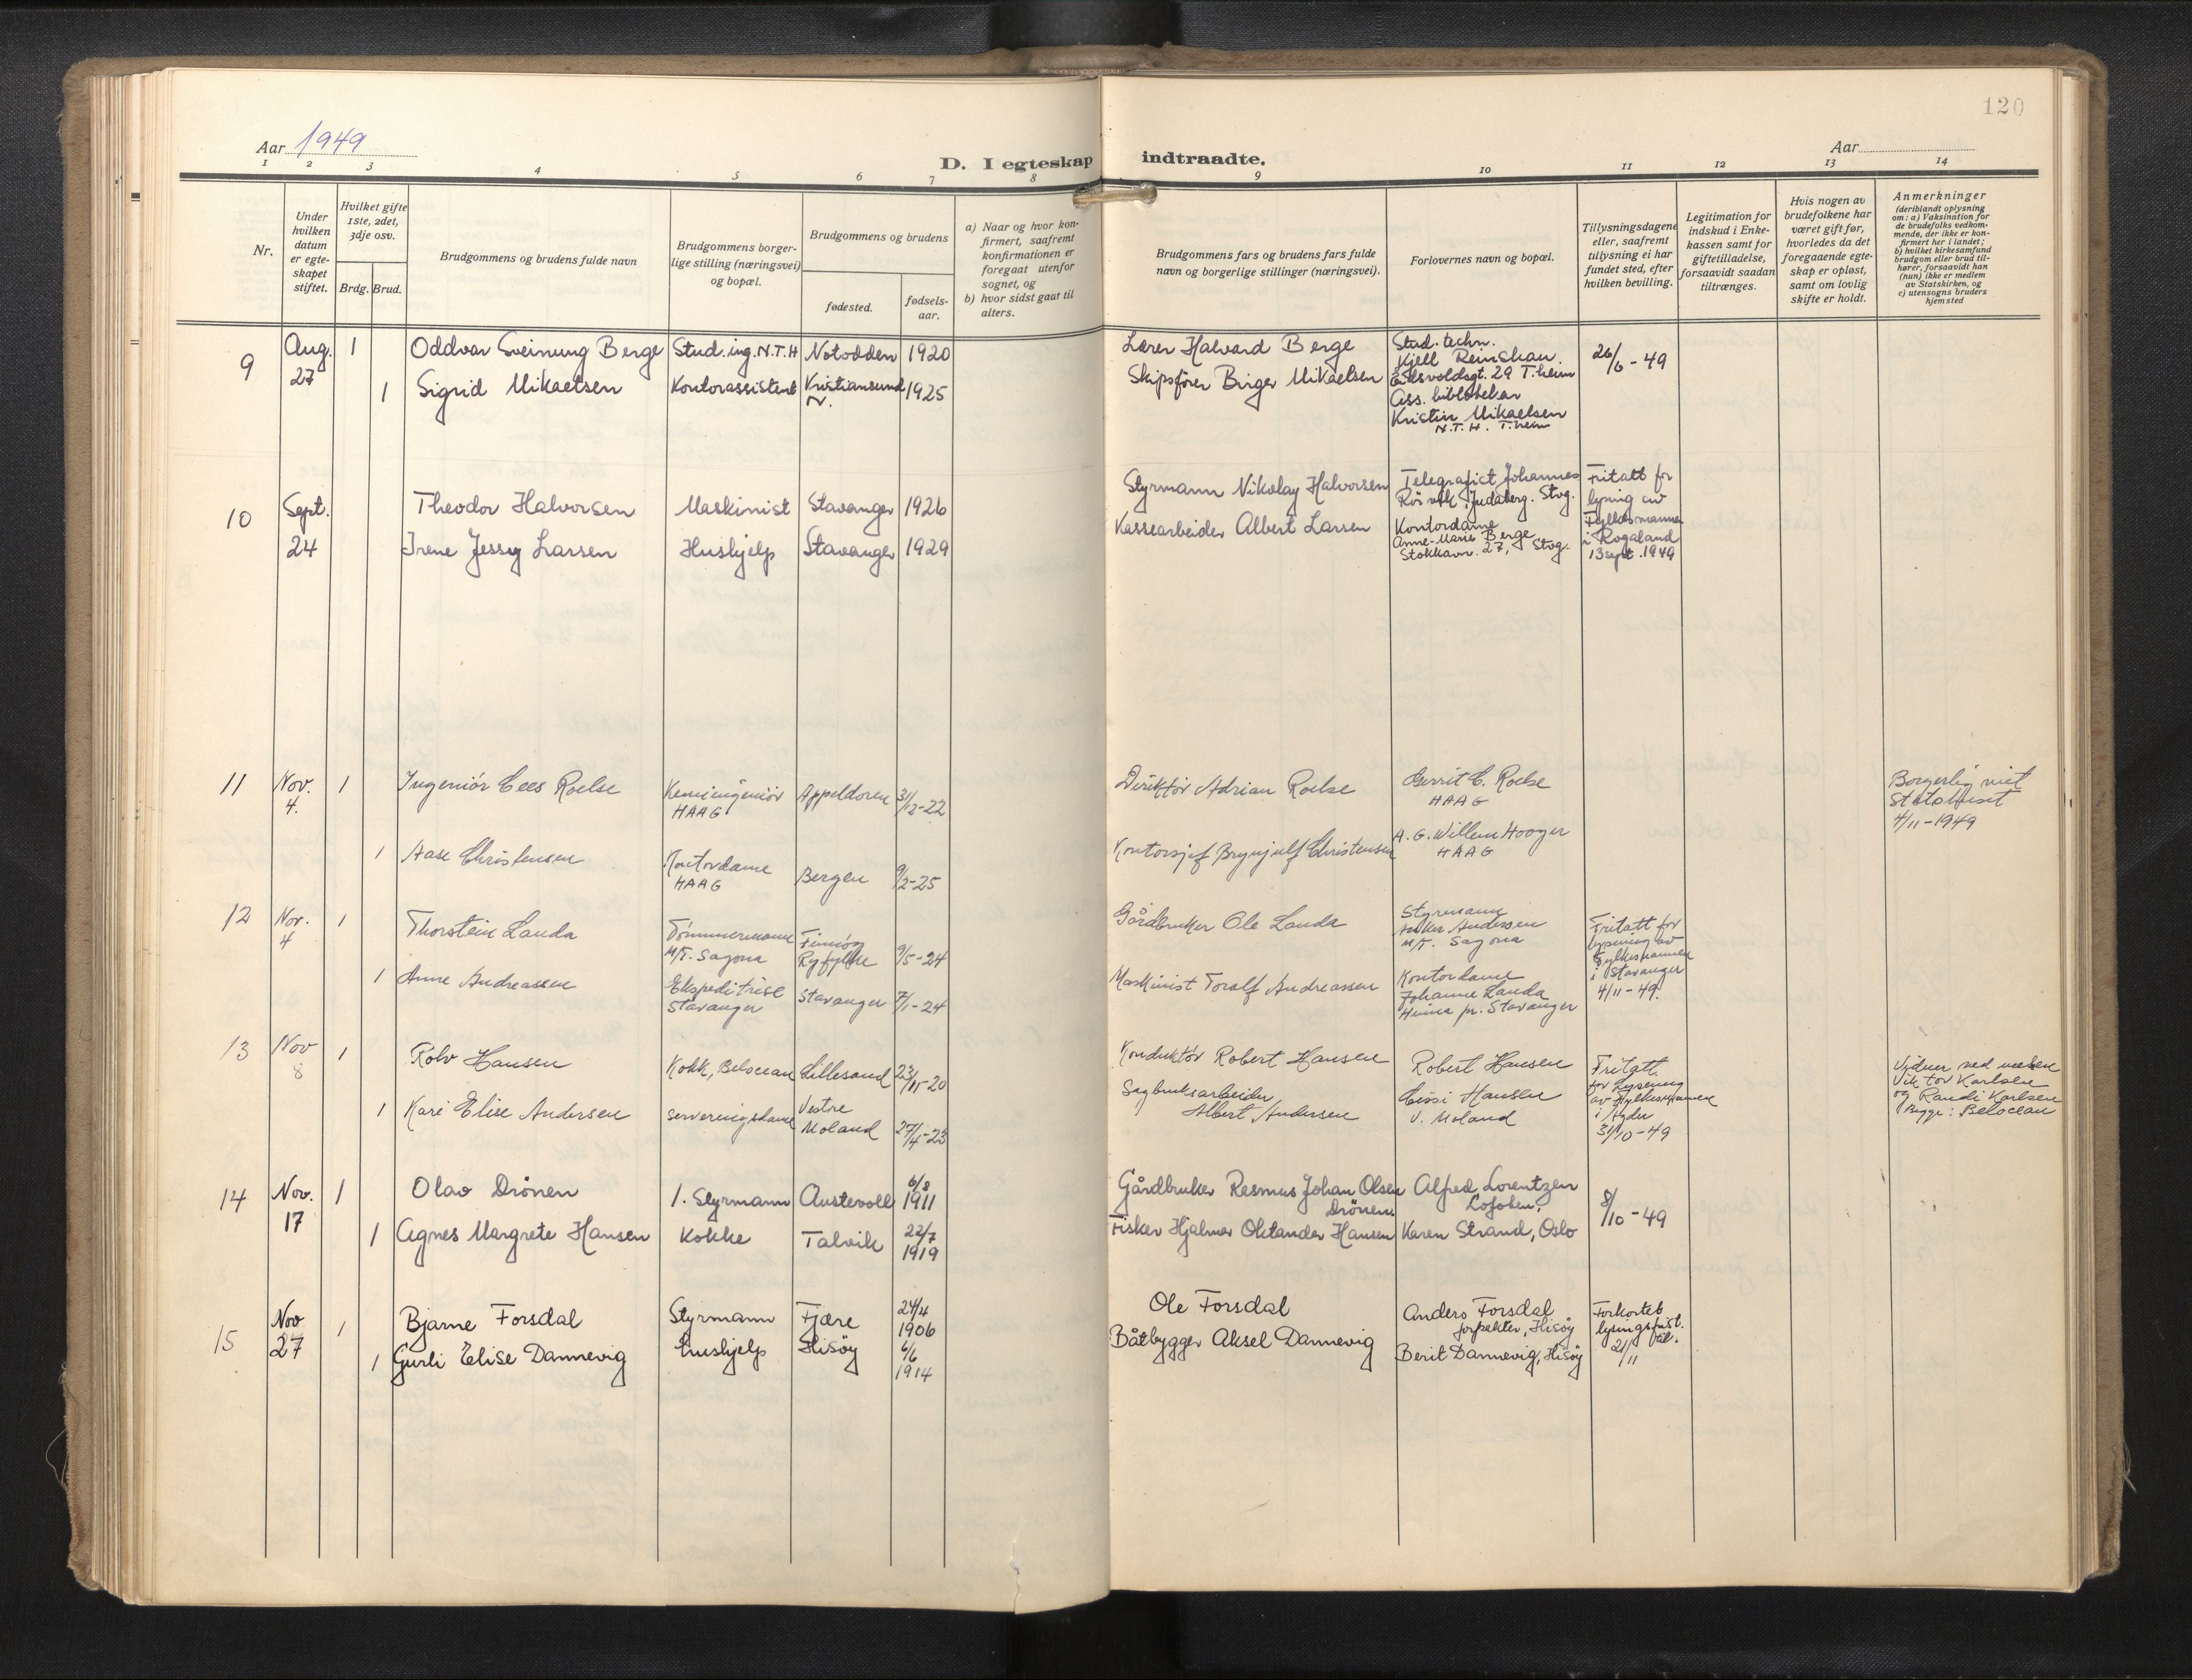 120
Aar 1949
Aar
D. I egteskap indtraadte.
1 2 3 4 5 6 7 8 9 10 11 12 13 14
Nr.
Under hvilken datum er egte-skapet stiftet.
Hvilket gifte 1ste, 2det, 3dje osv.
Brdg. Brud.
Brudgommens og brudens fulde navn
Brudgommens borger-lige stilling (næringsvei) og bopæl.
Brudgommens og brudens
fødested.
fødsels-aar.
a) Naar og hvor kon-firmert, saafremt konfirmationen er foregaat utenfor sognet, og
b) hvor sidst gaat til alters.
Brudgommens fars og brudens fars fulde navn og borgerlige stillinger (næringsvei).
Forlovernes navn og bopæl.
Tillysningsdagene eller, saafremt tillysning ei har fundet sted, efter hvilken bevilling.
Legitimation for indskud i Enke-kassen samt for giftetilladelse, forsaavidt saadan tiltrænges.
Hvis nogen av brudefolkene har været gift før, hvorledes da det foregaaende egte-skap er opløst, samt om lovlig skifte er holdt.
Anmerkninger
(deriblandt oplysning om: a) Vaksination for de brudefolks vedkom-mende, der ikke er kon-firmert her i landet; b) hvilket kirkesamfund brudgom eller brud til-hører, forsaavidt han (hun) ikke er medlem av Statskirken, og c) utensogns bruders hjemsted
9
Aug. 27
1 Oddvar Sveinung Berge Stud.ing. N.T.H Notodden 1920
1 Sigrid Mikaelsen Kontorassistent Kristiansund N. 1925
Lærer Halvard Berge
Skipsfører Birger Mikaelsen
Stud. techn.
Kjell
Eidsvoldsgt. 29 T.heim
Ass. bibliotekar
Kristin Mikaelsen
N.T.H. T.heim
26/6 - 49
10
Sept. 24
Theodor Halvorsen Maskinist Stavanger 1926
Irene Jessy Larsen Hushjelp Stavanger 1929
Styrmann Nikolay Halvorsen
Kassearbeider Albert Larsen
Telegrafist Johannes
Judaberg. Stvg.
Kontordame
Anne-Marie Berge
Stokkavn. 27, Stvg.
Fritatt for
lysning av
Fylkesmannen
i Rogaland
13 sept. 1949
11
Nov. 4.
1 Ingeniör Cees Roelse Kemiingeniør HAAG Appeldoren 31/12-22
1 Aase Christensen Kontordame HAAG Bergen 9/2-25
Direktør Adrian Roelse
Kontorsjef Brynjulf Christensen
Gerrit C. Roelse
HAAG
A. G. Willem Hooger
HAAG
Borgerlig viet
4/11-1949
12
Nov. 4
1 Thorstein Landa Tömmermann M/T. Sagona Finnöy Ryfylke 9/5-24
1 Anne Andreassen Ekspeditrise Stavanger Stavanger 7/1-24
Gårdbruker Ole Landa
Maskinist Toralf Andreassen
Styrmann
Anker Andersen
M/T. Sagona
Kontordame
Johanne Landa
Hinna pr. Stavanger
Fritatt for
lysning av
Fylkesmannen
i Stavanger
4/11-49.
13
Nov 8
1 Rolv Hansen Kokk, Belocean Lillesand 23/11-20
1 Kari Elise Andersen Serveringsdame Vestre Moland 27/4-23
Konduktør Robert Hansen
Sagbruksarbeider
Albert Andersen
Robert Hansen
Cissi Hansen
V. Moland
Fritatt
for lysning
av fylkesmannen
i Agder
31/10-49
Vidner ved vielsen
Viktor Karlsen
og Randi Karlsen
Begge: Belocean
14
Nov. 17
1 Olav Drönen 1. Styrmann Austevoll 6/8 1911
1 Agnes Margrete Hansen Kokke Talvik 22/7 1919
Gårdbruker Rasmus Johan Olsen
Drönen
Fisker Hjalmar Oktander Hansen
Alfred Lorentzen
Lofoten.
Karen Strand, Oslo
8/10 - 49
15
Nov 27
1 Bjarne Forsdal Styrmann Fjære 24/4 1906
1 Gurli Elise Dannevig hushjelp Hisöy 6/6 1914
Ole Forsdal
Båtbygger Aksel Dannevig
Anders Forsdal
forpakter, Hisöy
Berit Dannevig, Hisöy
Forkortet
lysingsfrist.
till.
21/11